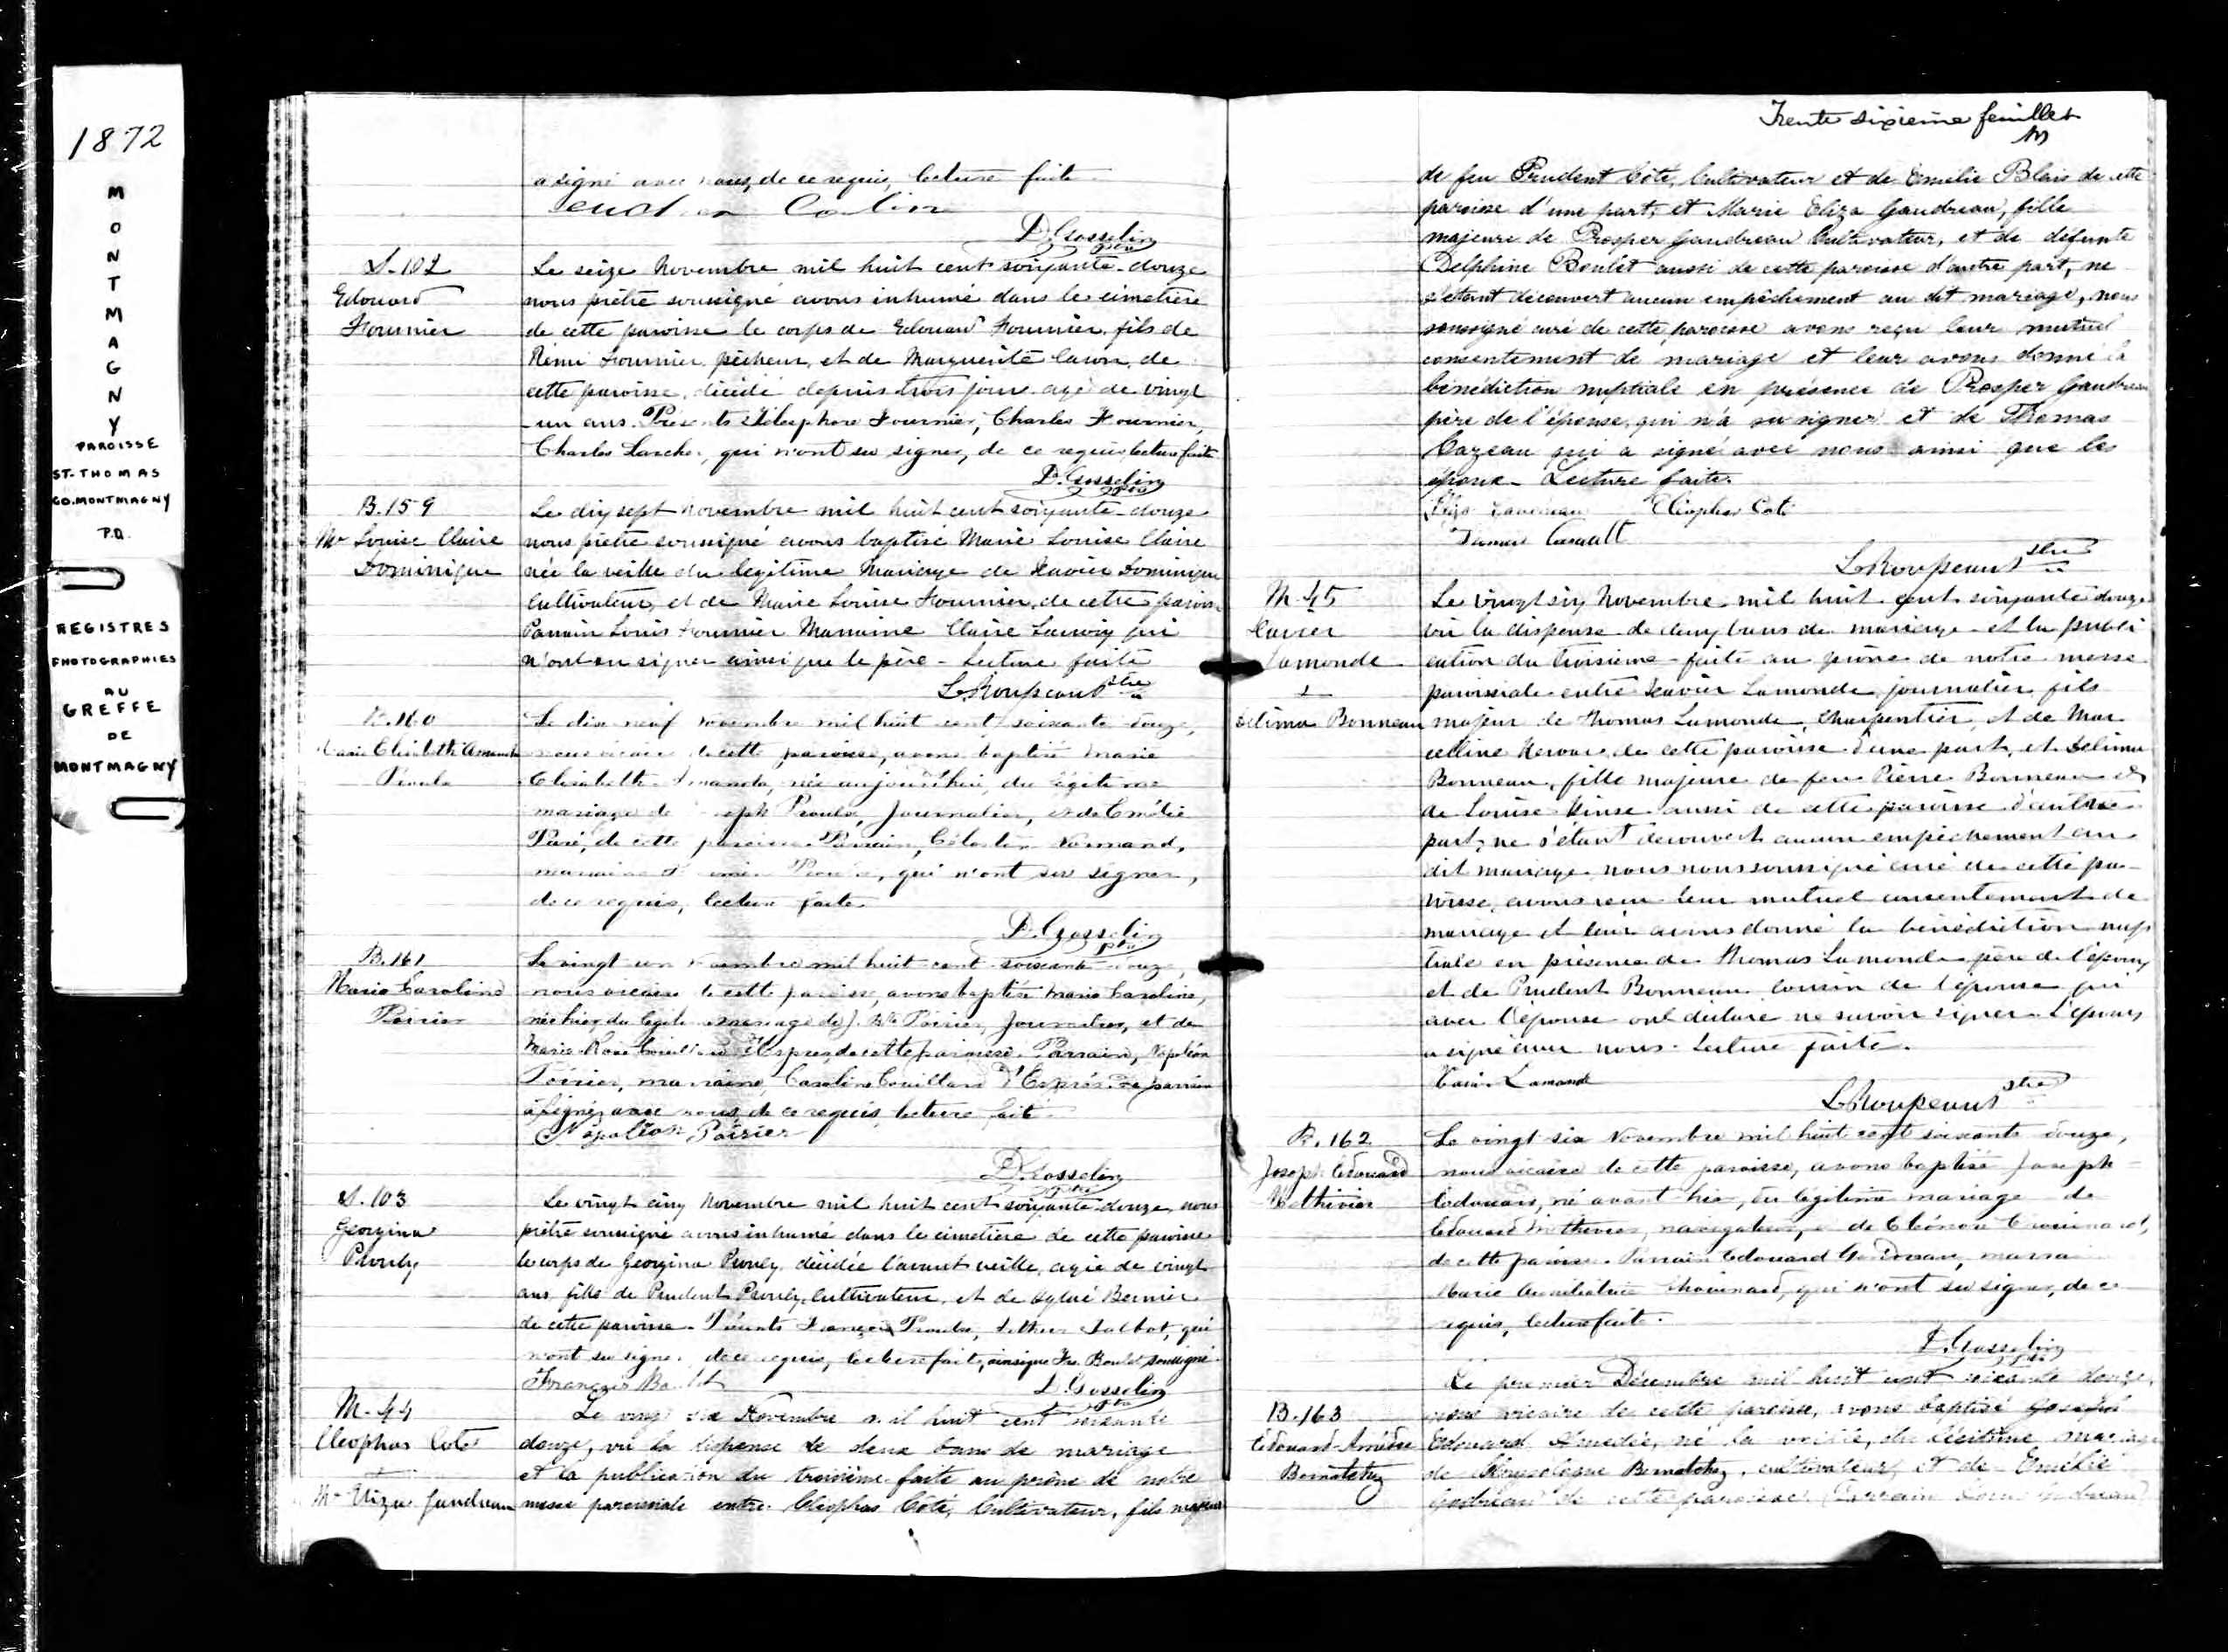 1872
MONTMAGNY
PAROISSE
ST-THOMAS
CO. MONTMAGNY
P.Q.
REGISTRES
PHOTOGRAPHIES
AU
GREFFE
DE
MONTMAGNY
a signé avec nous, de ce requis, lecture faite
D. Gosselin ptre
S-102
Edouard
Fournier
Le seize Novembre mil huit cent soixante-douze
nous prêtre soussigné avons inhumé dans le cimetière
de cette paroisse le corps de Edouard Fournier, fils de
Rémi Fournier, pêcheur, et de Marguerite Caron, de
cette paroisse, décédé depuis trois jours agé de vingt
-un ans. Présents Télesphore Fournier, Charles Fournier,
Charles qui n'ont su signer, de ce requis lecture faite
D. Gosselin ptre
B.159
Mie Louise Claire
Dominique
Le dix sept Novembre mil huit cent soixante-douze
nous prêtre soussigné avons baptisé Marie Louise Claire
née la veille du légitime mariage de Xavier Dominique
cultivateur, et de Marie Louise Fournier, de cette paroisse
Parrain Louis Fournier Marraine Claire qui
n'ont su signer ainsi que le père - Lecture faite
L. Roupeau ptre
B.160
Marie Elisabeth Amanda
Proulx
Le dix neuf novembre mil huit cent soixante douze,
nous vicaire de cette paroisse, avons baptisé Marie
Elisabeth Amanda, née aujourd'hui, du légitime
mariage de Joseph Proulx, Journalier, et de Emélie
Paré, de cette paroisse. Parrain, Célestin Normand,
marraine Proulx, qui n'ont su signer,
de ce requis, lecture faite
D. Gosselin ptre
B.161
Marie Caroline
Poirier
Le vingt un novembre mil huit cent soixante douze,
nous vicaire de cette paroisse, avons baptisé Marie Caroline,
née hier, du légitime mariage de J. Bte Poirier, Journalier, et de
Marie Rose Couillard Després, de cette paroisse. Parrain, Napoléon
Poirier, marraine, Caroline Couillard d'Esprés. Le parrain
a signé avec nous, de ce requis, lecture faite.
Napoléon Poirier
D. Gosselin ptre
S.103
Georgina
Proulx
Le vingt cinq Novembre mil huit cent soixante-douze, nous
prêtre soussigné avons inhumé dans le cimetière de cette paroisse
le corps de Georgina Proulx, décédée l'avant veille, agée de vingt
ans fille de Prudent Proulx, cultivateur, et de Sylvie Bernier
de cette paroisse - Présents François Proulx, Talbot, qui
n'ont su signer, de ce requis, lecture faite, ainsi que Frs Boulet soussigné
François Boulet
D. Gosselin ptre
M-44
Cleophas Coté
+
Mie Eliza Gaudreau
Le vingt six Novembre mil huit cent soixante
douze, vu la dispense de deux bans de mariage
et la publication du troisième faite au prône de notre
messe paroissiale entre Cléophas Coté, Cultivateur, fils majeur
Trente sixième feuillet
de feu Prudent Coté, Cultivateur et de Emélie Blais de cette
paroisse d'une part, et Marie Eliza Gaudreau, fille
majeure de Prosper Gaudreau Cultivateur, et de défunte
Delphine Boulet aussi de cette paroisse d'autre part, ne
s'étant découvert aucun empêchement au dit mariage, nous
soussigné curé de cette paroisse avons reçu leur mutuel
consentement de mariage et leur avons donné la
bénédiction nuptiale en présence de Prosper Gaudreau
père de l'épouse qui n'a su signer et de Thomas
Cazeau qui a signé avec nous ainsi que les
époux - Lecture faite.
Eliza Gaudreau Cléophas Coté
Thomas Casault
L. Roupeau ptre
M-45
Xavier
Lamonde
+
Délima Bonneau
Le vingt six Novembre mil huit cent soixante douze
vu la dispense de deux bans de mariage et la publi
cation du troisième faite au prône de notre messe
paroissiale entre Xavier Lamonde, journalier, fils
majeur de Thomas Lamonde, charpentier, et de Mar
celline de cette paroisse d'une part, et Délima
Bonneau, fille majeure de feu Pierre Bonneau et
de Louise aussi de cette paroisse d'autre
part, ne s'étant découvert aucun empêchement au
dit mariage nous nous soussigné curé de cette pa-
roisse, avons reçu leur mutuel consentement de
mariage et leur avons donné la bénédiction nup
tiale en présence de Thomas Lamonde père de l'époux
et de Prudent Bonneau cousin de l'épouse qui
avec l'épouse ont déclaré ne savoir signer. L'époux
a signé avec nous. Lecture faite.
Xavier Lamonde
L. Roupeau ptre
B.162
Joseph Edouard
Methivier
Le vingt six Novembre mil huit cent soixante douze,
nous vicaire de cette paroisse, avons baptisé Joseph
Edouard, né avant hier, du légitime mariage de
Edouard Methivier, navigateur, et de Eléonore Chouinard,
de cette paroisse. Parrain Edouard marraine
Marie Chouinard, qui n'ont su signer, de ce
requis, lecture faite.
D. Gosselin ptre
B.163
Edouard-Amédée
Bernatchez
Le premier Décembre mil huit cent soixante douze,
nous vicaire de cette paroisse, avons baptisé Joseph
Edouard Amédée, né la veille, du légitime mariage
de Bernatchez, cultivateur, et de Emélie
de cette paroisse. Parrain